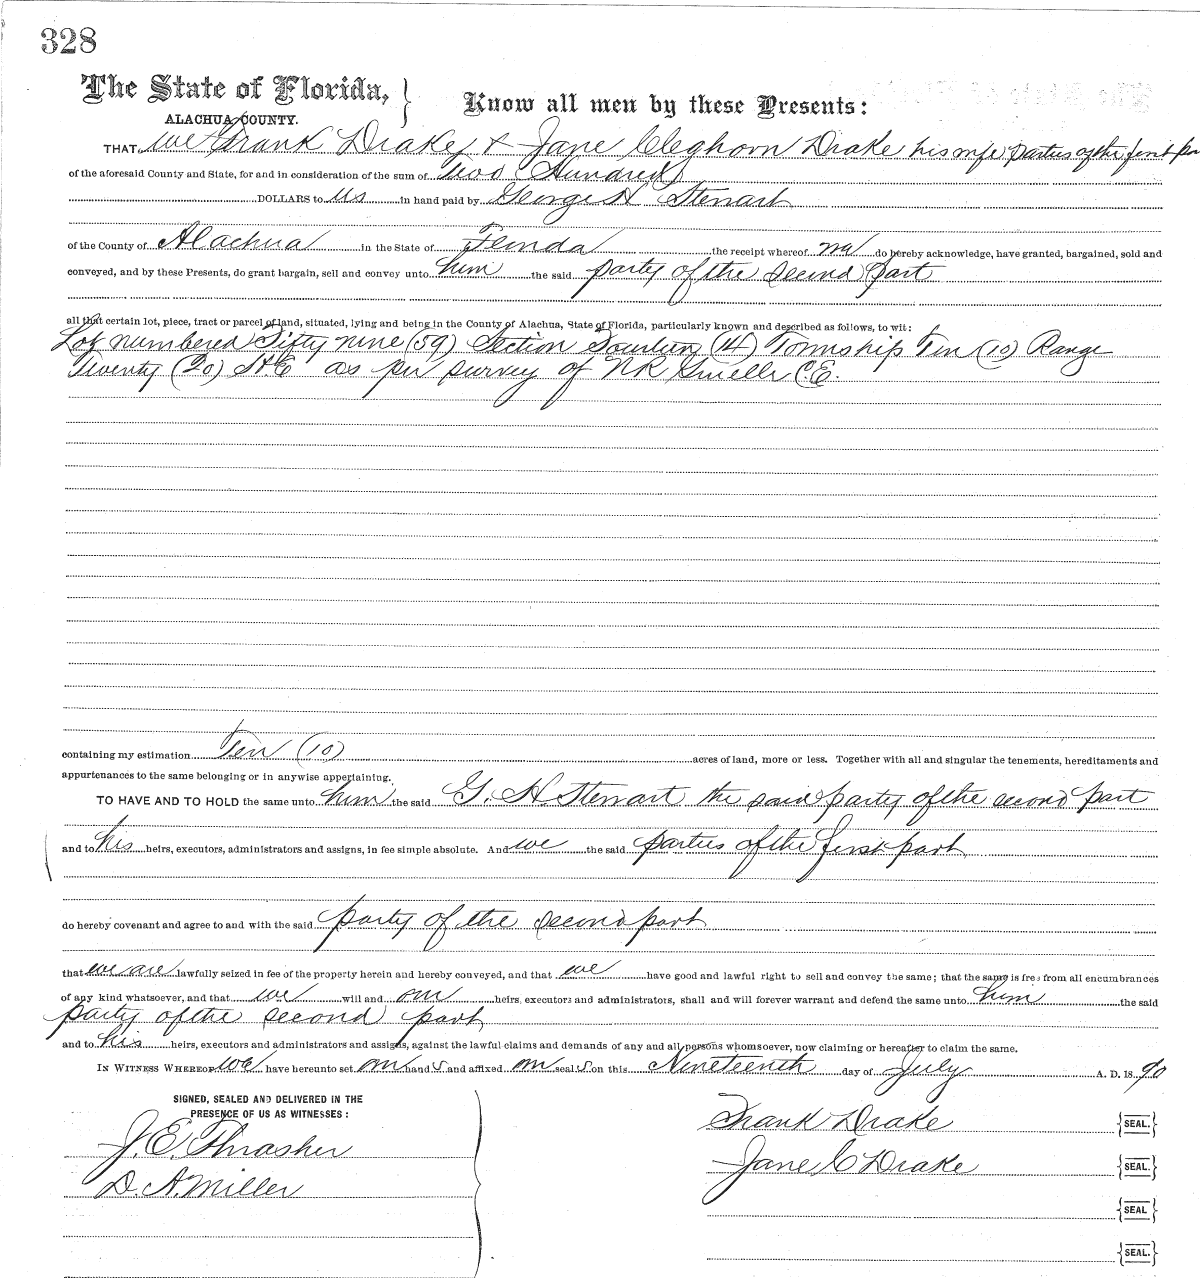 328
The State of Florida,
ALACHUA COUNTY.
Know all men by these Presents:
THAT we Frank Drake & Jane Cleghorn Drake his wife parties of the first
of the aforesaid County and State, for and in consideration of the sum of Two Hundred
DOLLARS to us in hand paid by George H Stewart
of the County of Alachua in the State of Florida the receipt whereof we do hereby acknowledge, have granted, bargained, sold and
conveyed, and by these Presents, do grant bargain, sell and convey unto him the said party of the second part
all that certain lot, piece, tract or parcel of land, situated, lying and being in the County of Alachua, State of Florida, particularly known and described as follows, to wit:
Lot numbered Fifty nine (59) Section Fourteen (14) Township Ten (10) Range
Twenty (20) as per survey of C.E.
containing my estimation Ten (10) acres of land, more or less. Together with all and singular the tenements, hereditaments and
appurtenances to the same belonging or in anywise appertaining.
TO HAVE AND TO HOLD the same unto him the said G. H Stewart the said party of the second part
and to his heirs, executors, administrators and assigns, in fee simple absolute. And we the said parties of the first part
do hereby covenant and agree to and with the said party of the second part
that we are lawfully seized in fee of the property herein and hereby conveyed, and that we have good and lawful right to sell and convey the same; that the same is free from all encumbrances
of any kind whatsoever, and that we will and our heirs, executors and administrators, shall and will forever warrant and defend the same unto him the said
party of the second part
and to his heirs, executors and administrators and assigns, against the lawful claims and demands of any and all persons whomsoever, now claiming or hereafter to claim the same.
IN WITNESS WHEREOF we have hereunto set our hand s and affixed our seal s on this Nineteenth day of July A. D. 18 90
SIGNED, SEALED AND DELIVERED IN THE
PRESENCE OF US AS WITNESSES:
J. E. Thrasher
D. A. Miller
Frank Drake SEAL.
Jane C Drake SEAL.
SEAL.
SEAL.